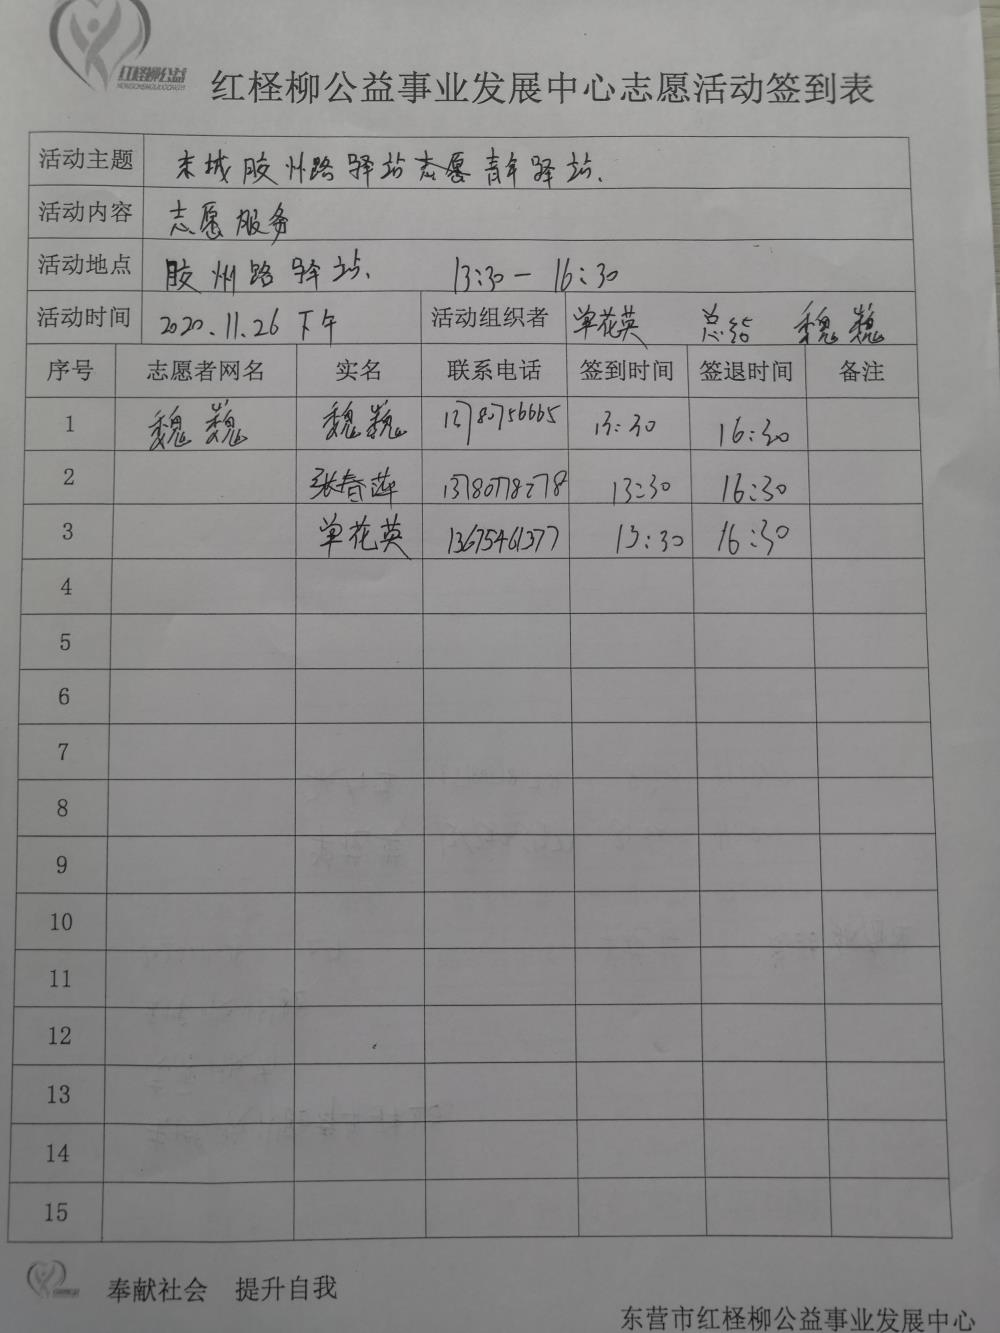 红柽柳公益
HONGCHENGLIUGONGYI
红柽柳公益事业发展中心志愿活动签到表
活动主题 东城胶州路驿站志愿青年驿站.
活动内容 志愿服务
活动地点 胶州路驿站. 13:30一16:30
活动时间 2020.11.26下午 活动组织者 单花英 总结 魏巍
序号 志愿者网名 实名 联系电话 签到时间 签退时间 备注
1 魏巍 魏巍 13780756665 13:30 16:30
2 张春萍 13780778278 13:30 16:30
3 单花英 13675461377 13:30 16:30
4
5
6
7
8
9
10
11
12
13
14
15
奉献社会 提升自我
东营市红柽柳公益事业发展中心